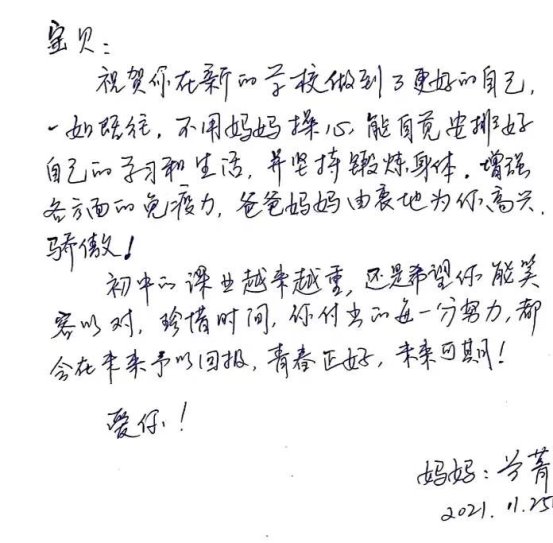 宝贝：
祝贺你在新的学校做到了更好的自己，
一如既往，不用妈妈操心，能自觉安排好
自己的学习和生活，并坚持锻炼身体，增强
各方面的免疫力，爸爸妈妈由衷地为你高兴，
骄傲！
初中的课业越来越重，还是希望你能笑
容以对，珍惜时间，你付出的每一分努力，都
会在未来予以回报，青春正好，未来可期！
爱你！
妈妈：菁
2021.11.25